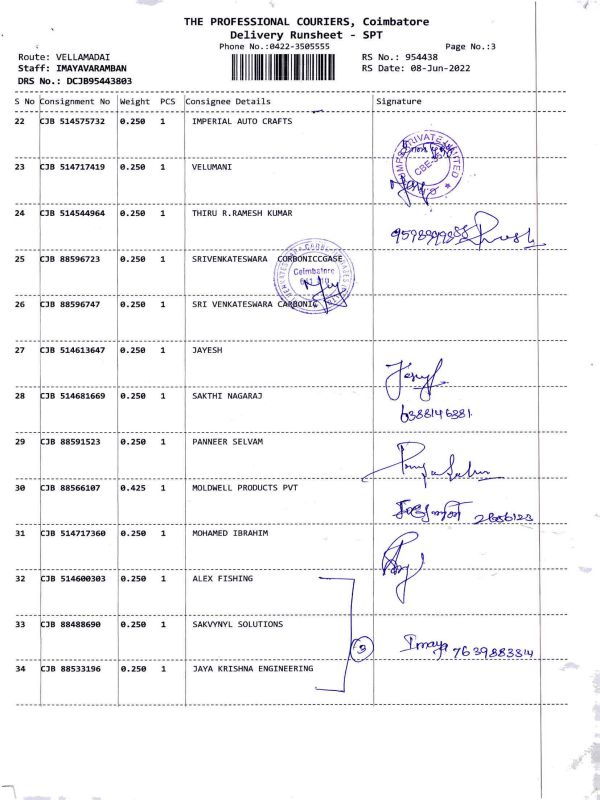 THE PROFESSIONAL COURIERS, Coimbatore
Delivery Runsheet - SPT
Phone No.:0422-3505555 Page No.:3
Route: VELLAMADAI RS No.: 954438
Staff: IMAYAVARAMBAN RS Date: 08-Jun-2022
DRS No.: DCJB95443803
S No Consignment No Weight PCS Consignee Details Signature
22 CJB 514575732 0.250 1 IMPERIAL AUTO CRAFTS
23 CJB 514717419 0.250 1 VELUMANI
24 CJB 514544964 0.250 1 THIRU R.RAMESH KUMAR
25 CJB 88596723 0.250 1 SRIVENKATESWARA CORBONICCGASE
Coimbatore
26 CJB 88596747 0.250 1 SRI VENKATESWARA CARBONIC
27 CJB 514613647 0.250 1 JAYESH
28 CJB 514681669 0.250 1 SAKTHI NAGARAJ
6388146381
29 CJB 88591523 0.250 1 PANNEER SELVAM
30 CJB 88566107 0.425 1 MOLDWELL PRODUCTS PVT
31 CJB 514717360 0.250 1 MOHAMED IBRAHIM
32 CJB 514600303 0.250 1 ALEX FISHING
33 CJB 88488690 0.250 1 SAKVYNYL SOLUTIONS
3 Imaya 7639883314
34 CJB 88533196 0.250 1 JAYA KRISHNA ENGINEERING